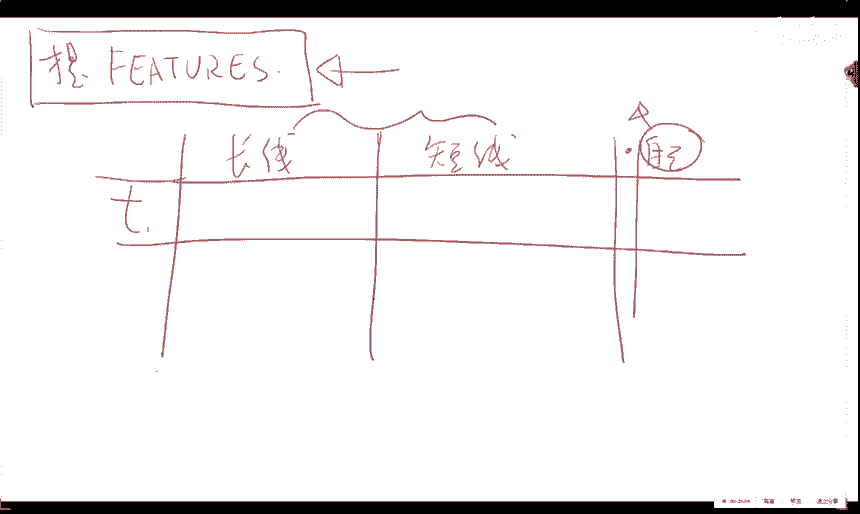 提 FEATURES.
长线 短线
t.